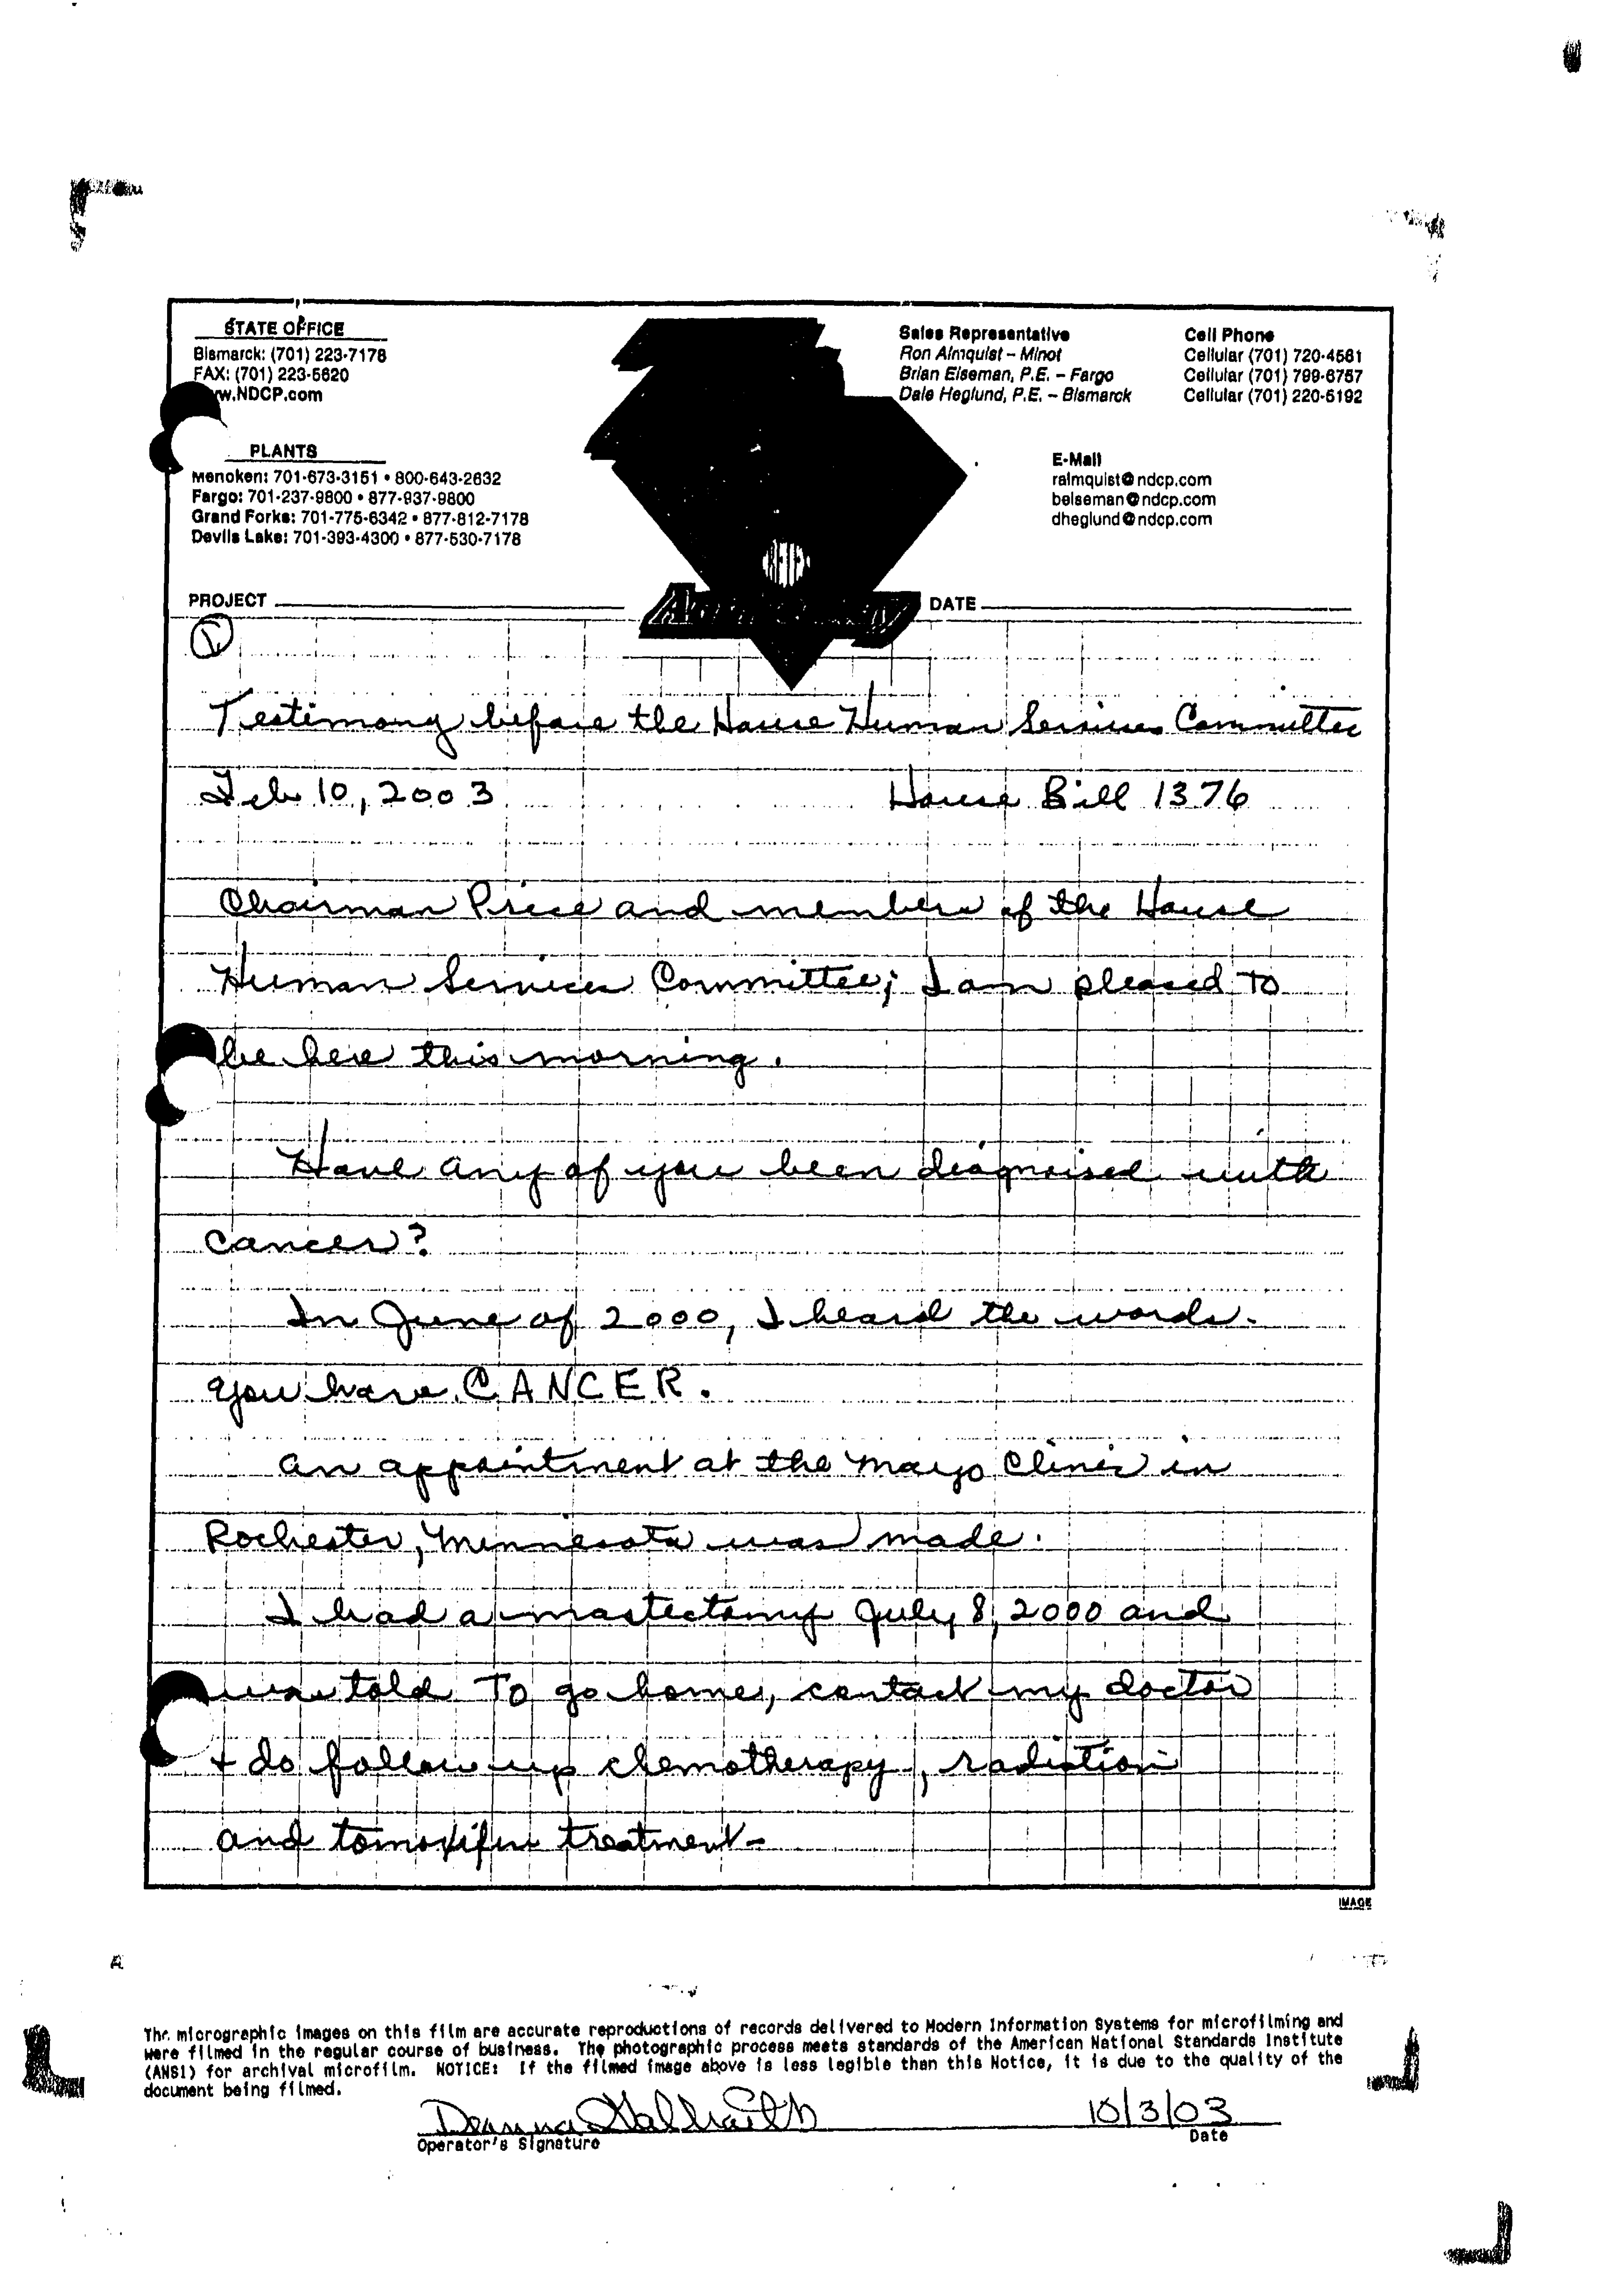 STATE OFFICE
Bismarck: (701) 223-7178
FAX: (701) 223-5620
w.NDCP.com
PLANTS
Menoken: 701-673-3151 • 800-643-2632
Fargo: 701-237-9800 • 877-937-9800
Grand Forks: 701-775-6342 • 877-812-7178
Devils Lake: 701-393-4300 • 877-530-7178
Sales Representative
Ron Almquist – Minot
Brian Eiseman, P.E. – Fargo
Dale Heglund, P.E. – Bismarck
Cell Phone
Cellular (701) 720-4581
Cellular (701) 799-6757
Cellular (701) 220-5192
E-Mail
ralmquist@ndcp.com
beiseman@ndcp.com
dheglund@ndcp.com
PROJECT
DATE
1
Testimony before the House Human Services Committee
Feb 10, 2003 House Bill 1376
Chairman Price and members of the House
Human Services Committee; I am pleased to
be here this morning.
Have any of you been diagnoised with
cancer?
In June of 2000, I heard the words.
you have CANCER.
An appointment at the Mayo Clinic in
Rochester, Minnesota was made.
I had a mastectomy July 8, 2000 and
was told to go home, contact my doctor
+ do follow up chemotherapy, radiation
and tomoxifin treatment-
IMAGE
The micrographic images on this film are accurate reproductions of records delivered to Modern Information Systems for microfilming and
were filmed in the regular course of business. The photographic process meets standards of the American National Standards Institute
(ANSI) for archival microfilm. NOTICE: If the filmed image above is less legible than this Notice, it is due to the quality of the
document being filmed.
Deanna 10/3/03
Operator's Signature Date